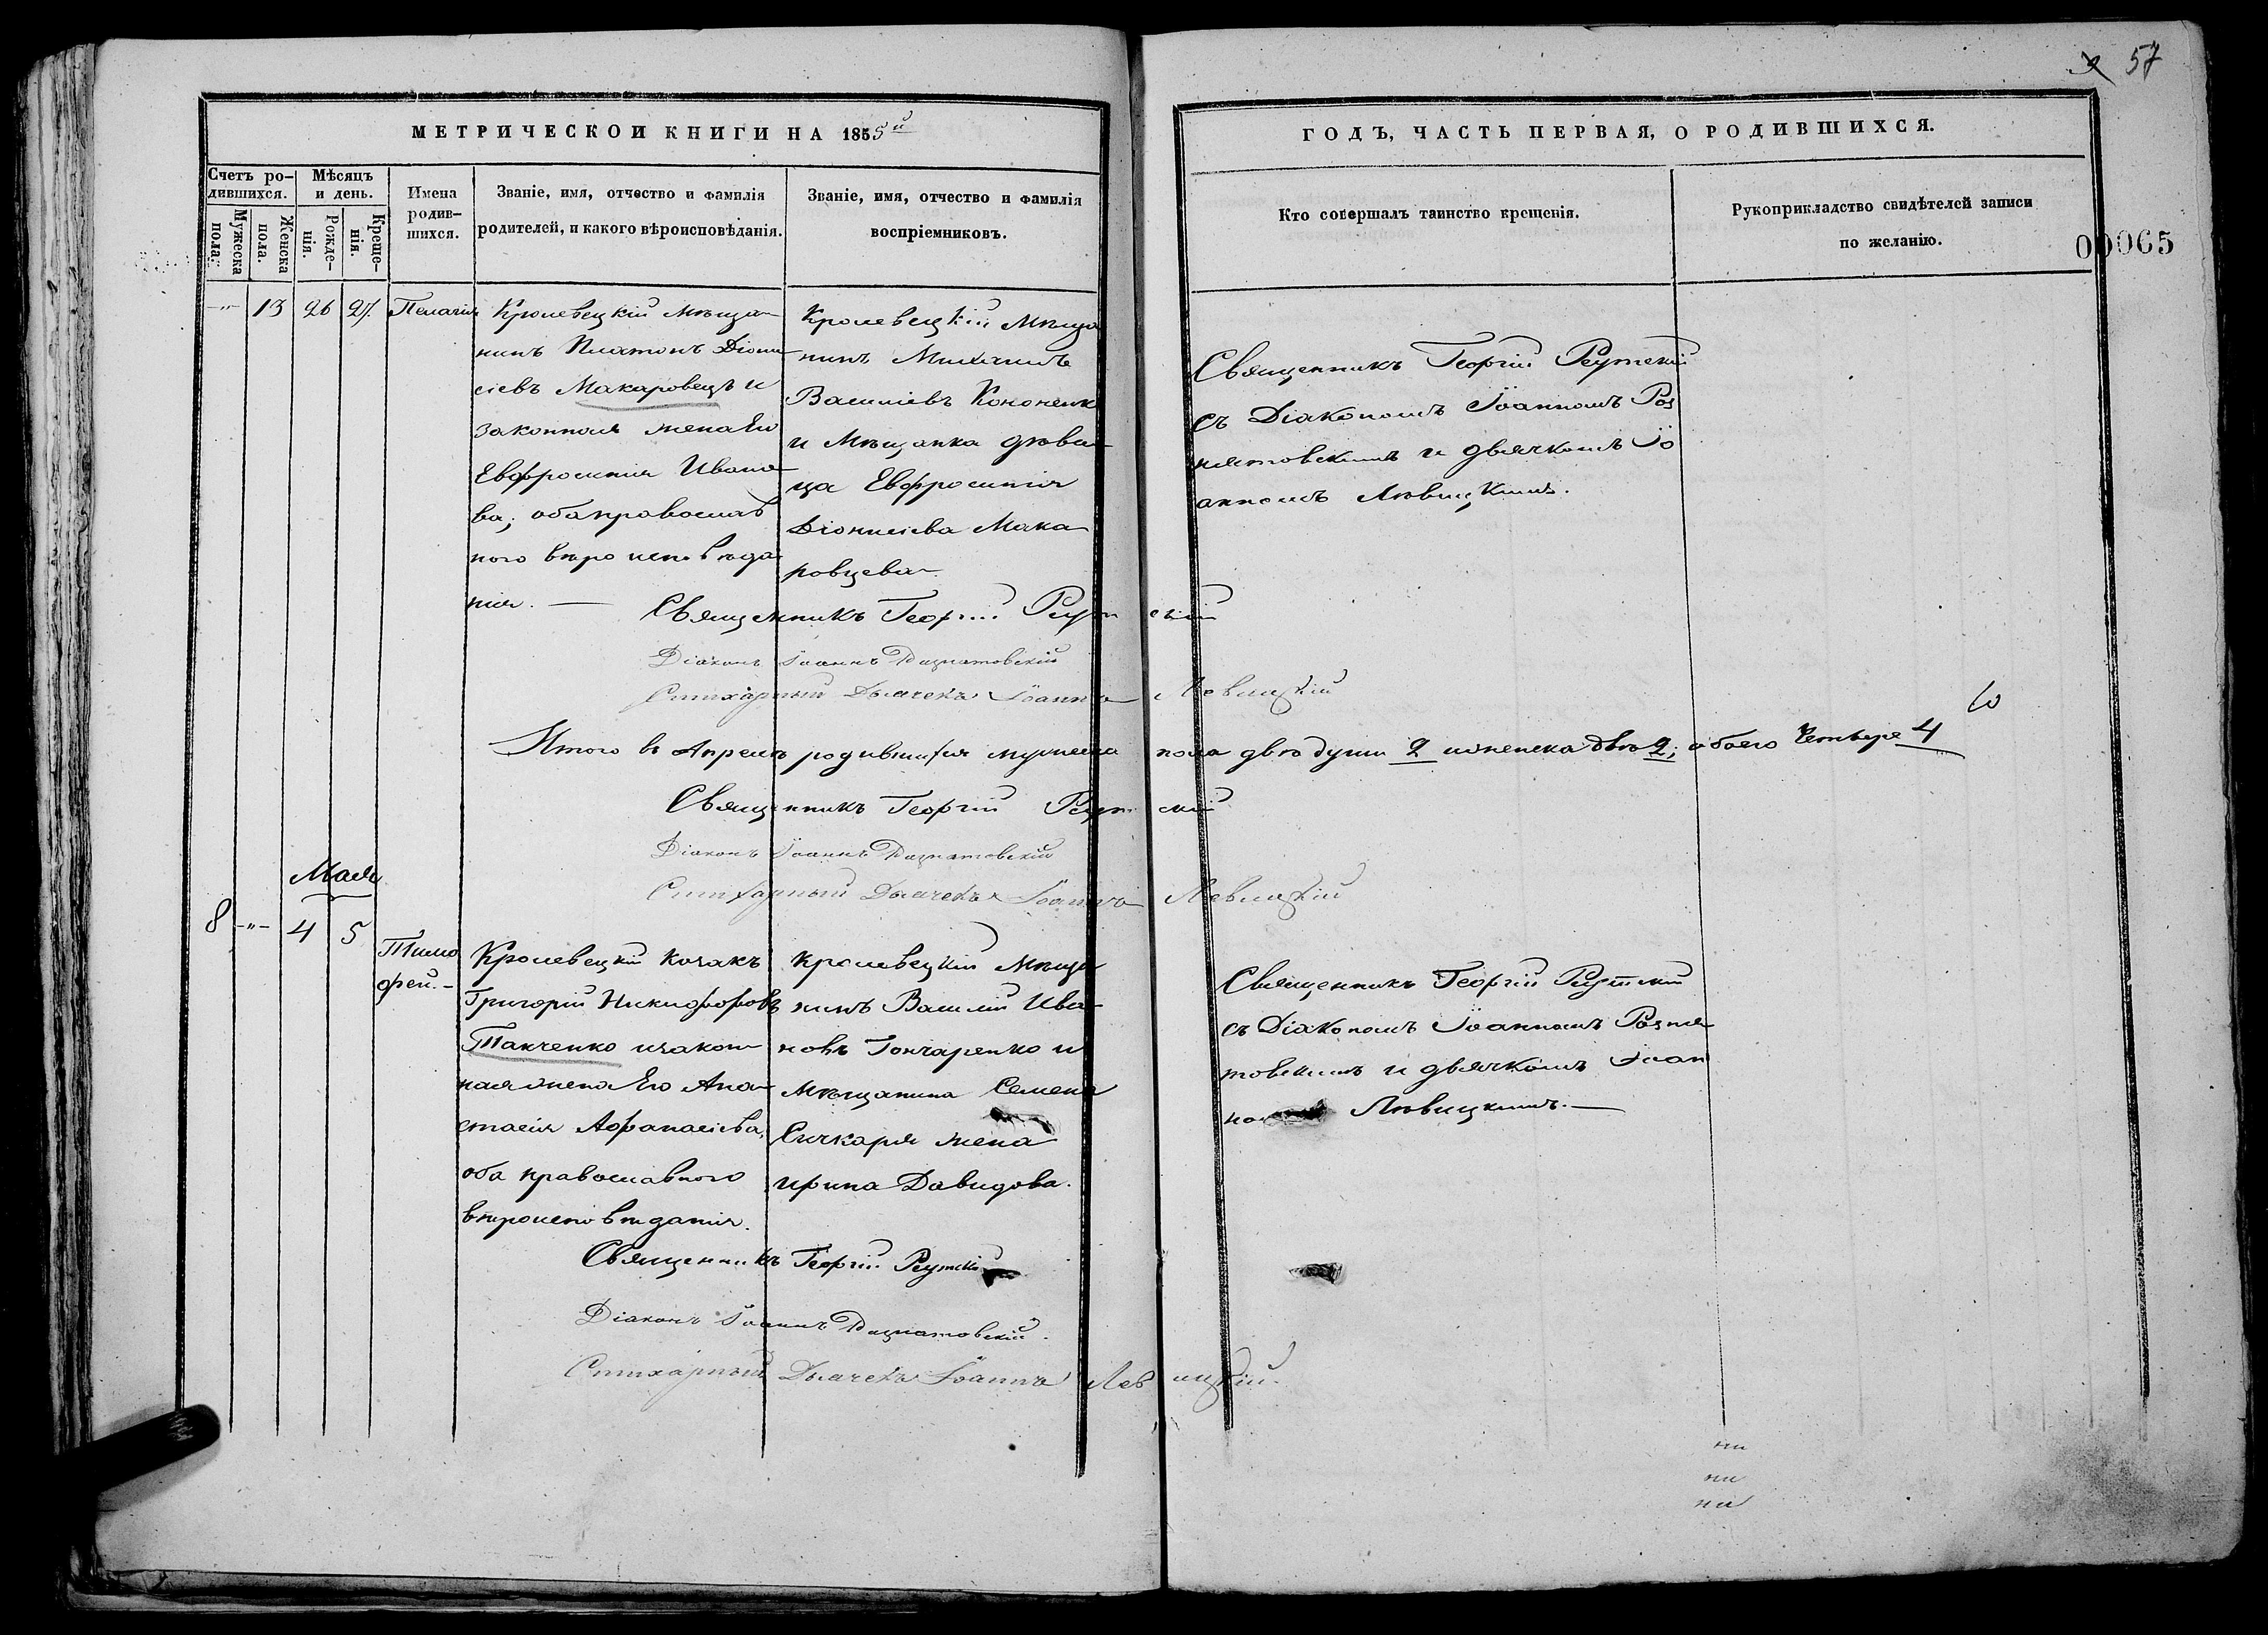 57
МЕТРИЧЕСКОЙ КНИГИ НА 1855й
ГОДЪ, ЧАСТЬ ПЕРВАЯ, О РОДИВШИХСЯ.
Счетъ ро-
дившихся.
Мужеска
пола.
Женска
пола.
Мѣсяцъ
и день.
Рожде-
нія.
Креще-
нія.
Имена
родив-
шихся.
Званіе, имя, отчество и фамилія
родителей, и какого вѣроисповѣданія.
Званіе, имя, отчество и фамилія
воспріемниковъ.
Кто совершалъ таинство крещенія.
Рукоприкладство свидѣтелей записи
по желанію.
00065
-"- 13 26 27 Пелагія
Кролевецкій мѣща-
нинъ Платонъ Діони-
сіевъ Макаровецъ и
законная жена Его
Евфросинія Ивано-
ва; оба православ
ного вѣроисповѣда
нія. —
Кролевецкій Мѣща
нинъ Михаилъ
Василіевъ Кононенко
и Мѣщанка дѣви-
ца Евфросинія
Діонисіева Мака-
ровцева.
Священникъ Георгій Реутскій
съ Діакономъ Іоанномъ Роз
нятовскимъ и дьячкомъ Іо
анномъ Лѣвицкимъ.
Священникъ Георгій Реутскій
Діаконъ Іоаннъ Рознатовскій
Стихарный Дьячекъ Іоаннъ Левицкій
Итого въ Апрелѣ родившихся мужеска пола двѣ души 2 и женска двѣ 2; обоего четыре 4
Священникъ Георгій Реутскій
Діаконъ Іоаннъ Рознатовскій
Стихарный Дьячекъ Іоаннъ Левицкій
Мая
8 -"- 4 5
Тимо
фей. -
Кролевецкій козакъ
Григорій Никифоровъ
Ткаченко и закон-
ная жена Его Ана-
стасія Афанасіева,
оба православного
вѣроисповѣданія.
Кролевецкій Мѣща
нинъ Василій Ива-
новъ Гончаренко и
Мѣщанина Семена
Сичкаря жена
Ирина Давидова.
Священникъ Георгій Реутскій
съ Діакономъ Іоанномъ Розня-
товскимъ и дьячкомъ Іоан
номъ Лѣвицкимъ. —
Священникъ Георгій Реутскій
Діаконъ Іоаннъ Рознатовскій.
Стихарный Дьячекъ Іоаннъ Левицкій.
ни
ни
ни